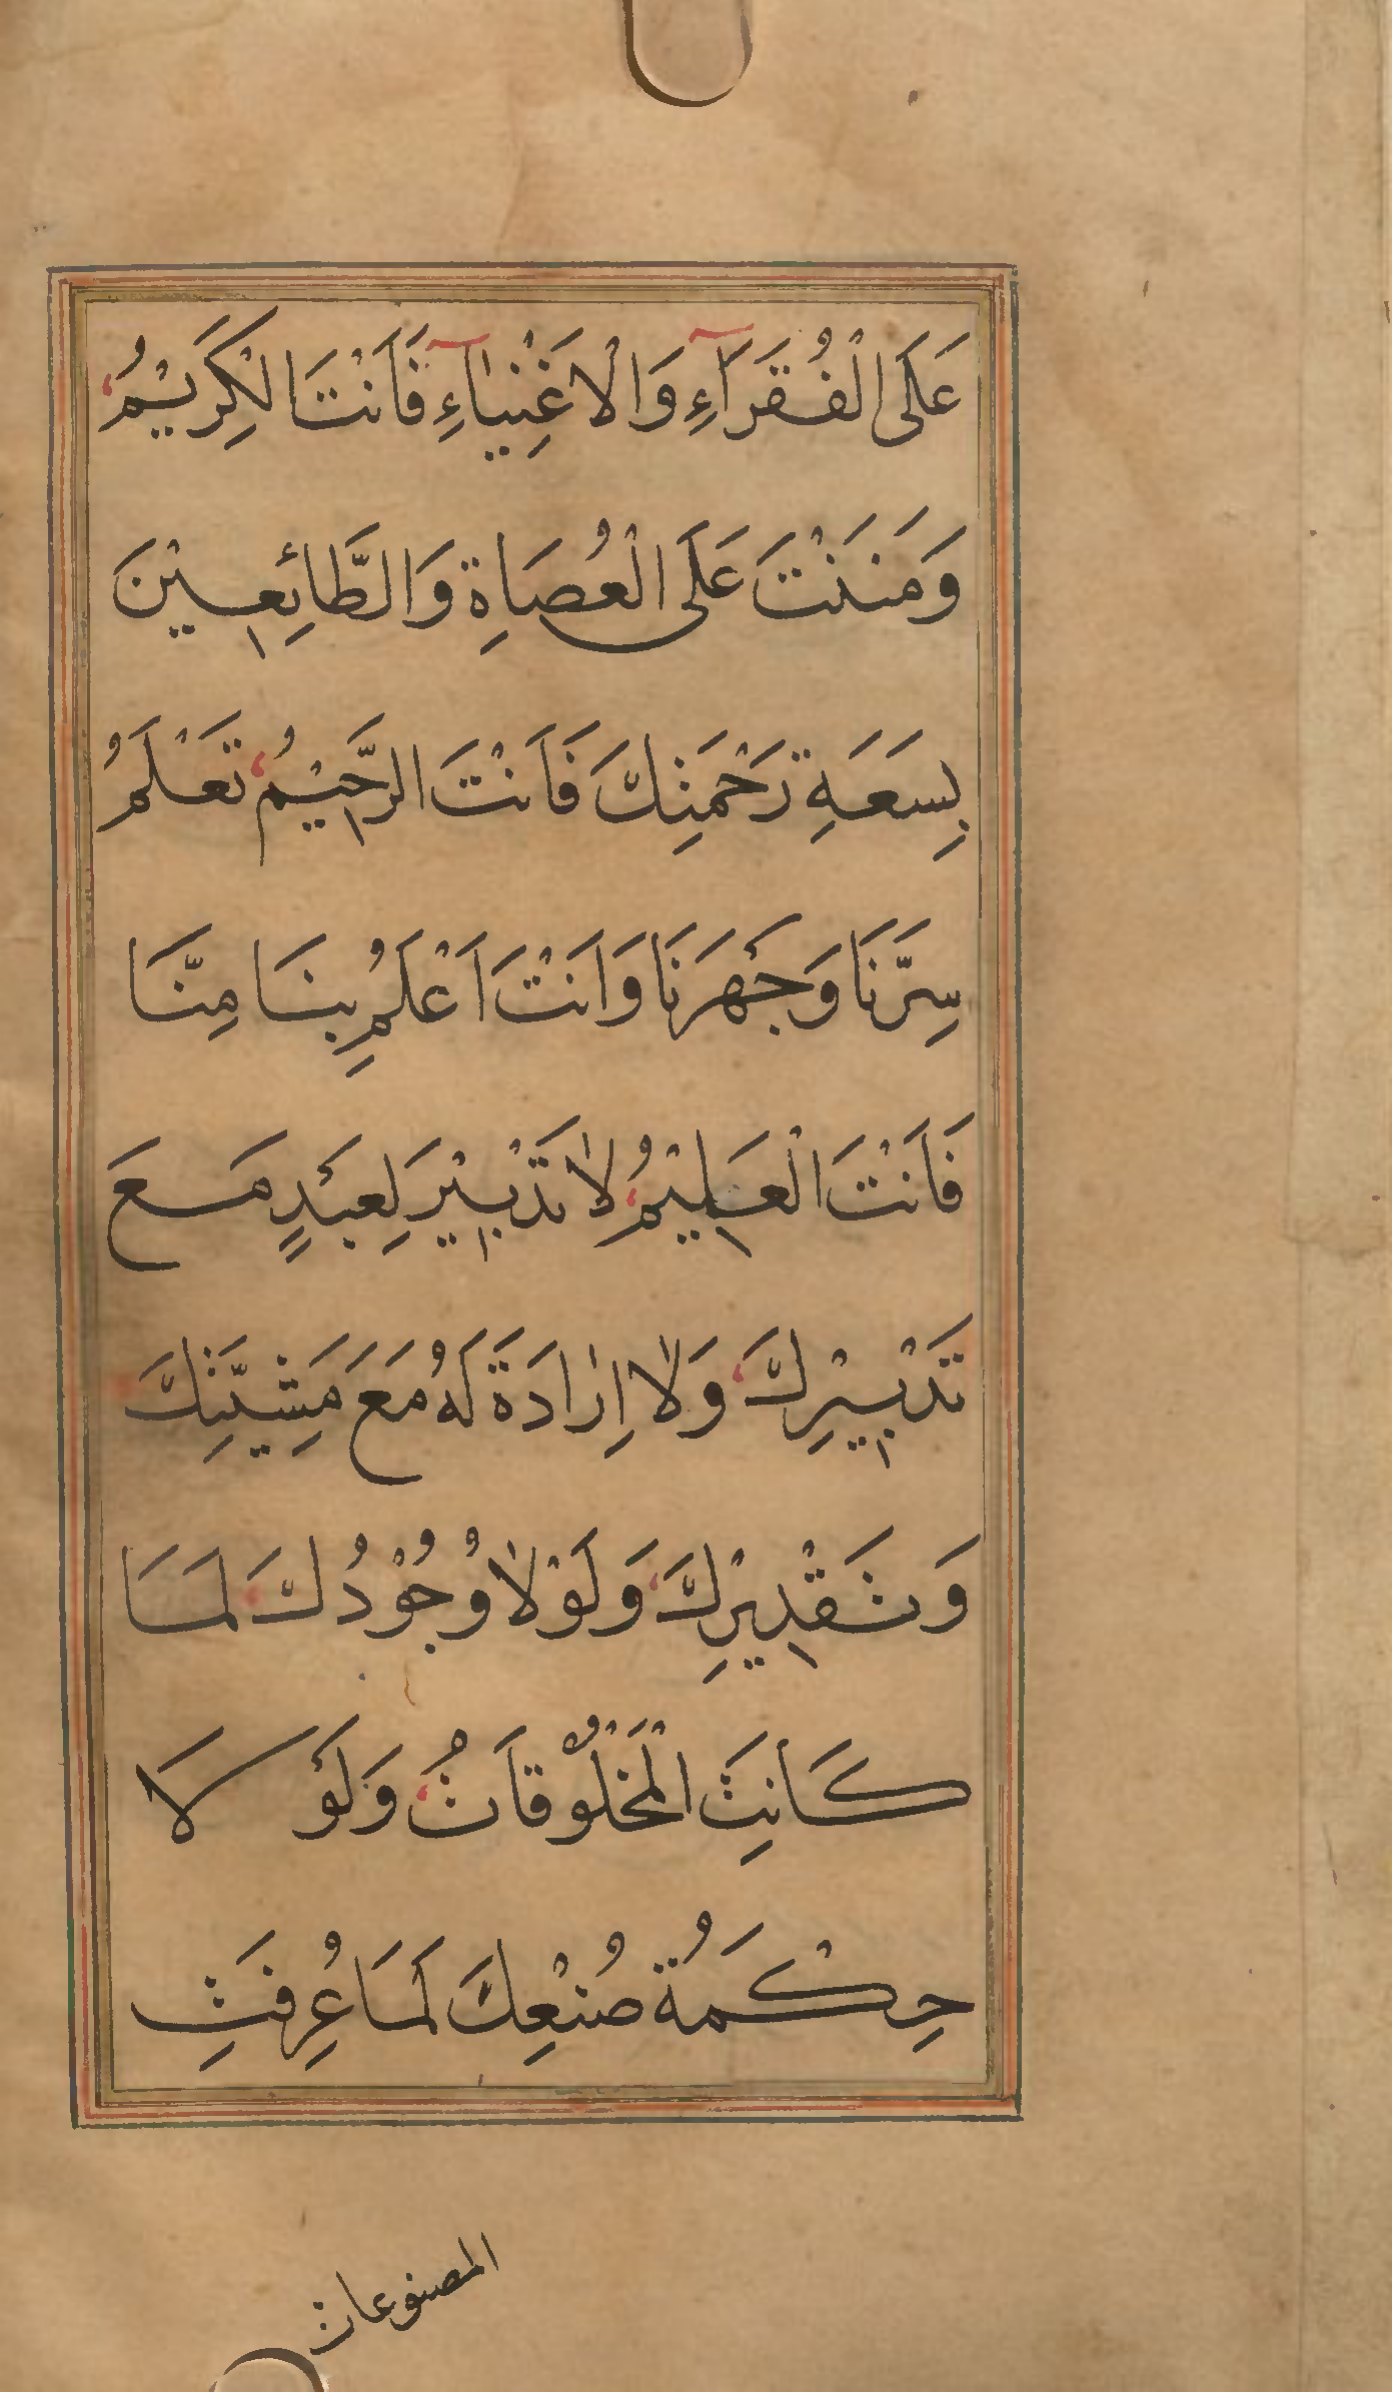 عَلَى الْفُقَرَآءِ وَالْاَغْنِيَآءِ فَاَنْتَ الْكَرِيْمُ
وَمَنَنْتَ عَلَى الْعُصَاةِ وَالطَّائِعِيْنَ
بِسَعَةِ رَحْمَتِكَ فَاَنْتَ الرَّحِيْمُ تَعْلَمُ
سِرَّنَا وَجَهْرَنَا وَاَنْتَ اَعْلَمُ بِنَا مِنَّا
فَاَنْتَ الْعَلِيْمُ لَا تَدْبِيْرَ لِعَبْدٍ مَعَ
تَدْبِيْرِكَ وَلَا اِرَادَةَ لَهُ مَعَ مَشِيَّتِكَ
وَتَقْدِيْرِكَ وَلَوْلَا وُجُوْدُكَ لَمَا
كَانَتِ الْمَخْلُوْقَاتُ وَلَوْلَا
حِكْمَةُ صُنْعِكَ لَمَا عُرِفَتِ
المصنوعات